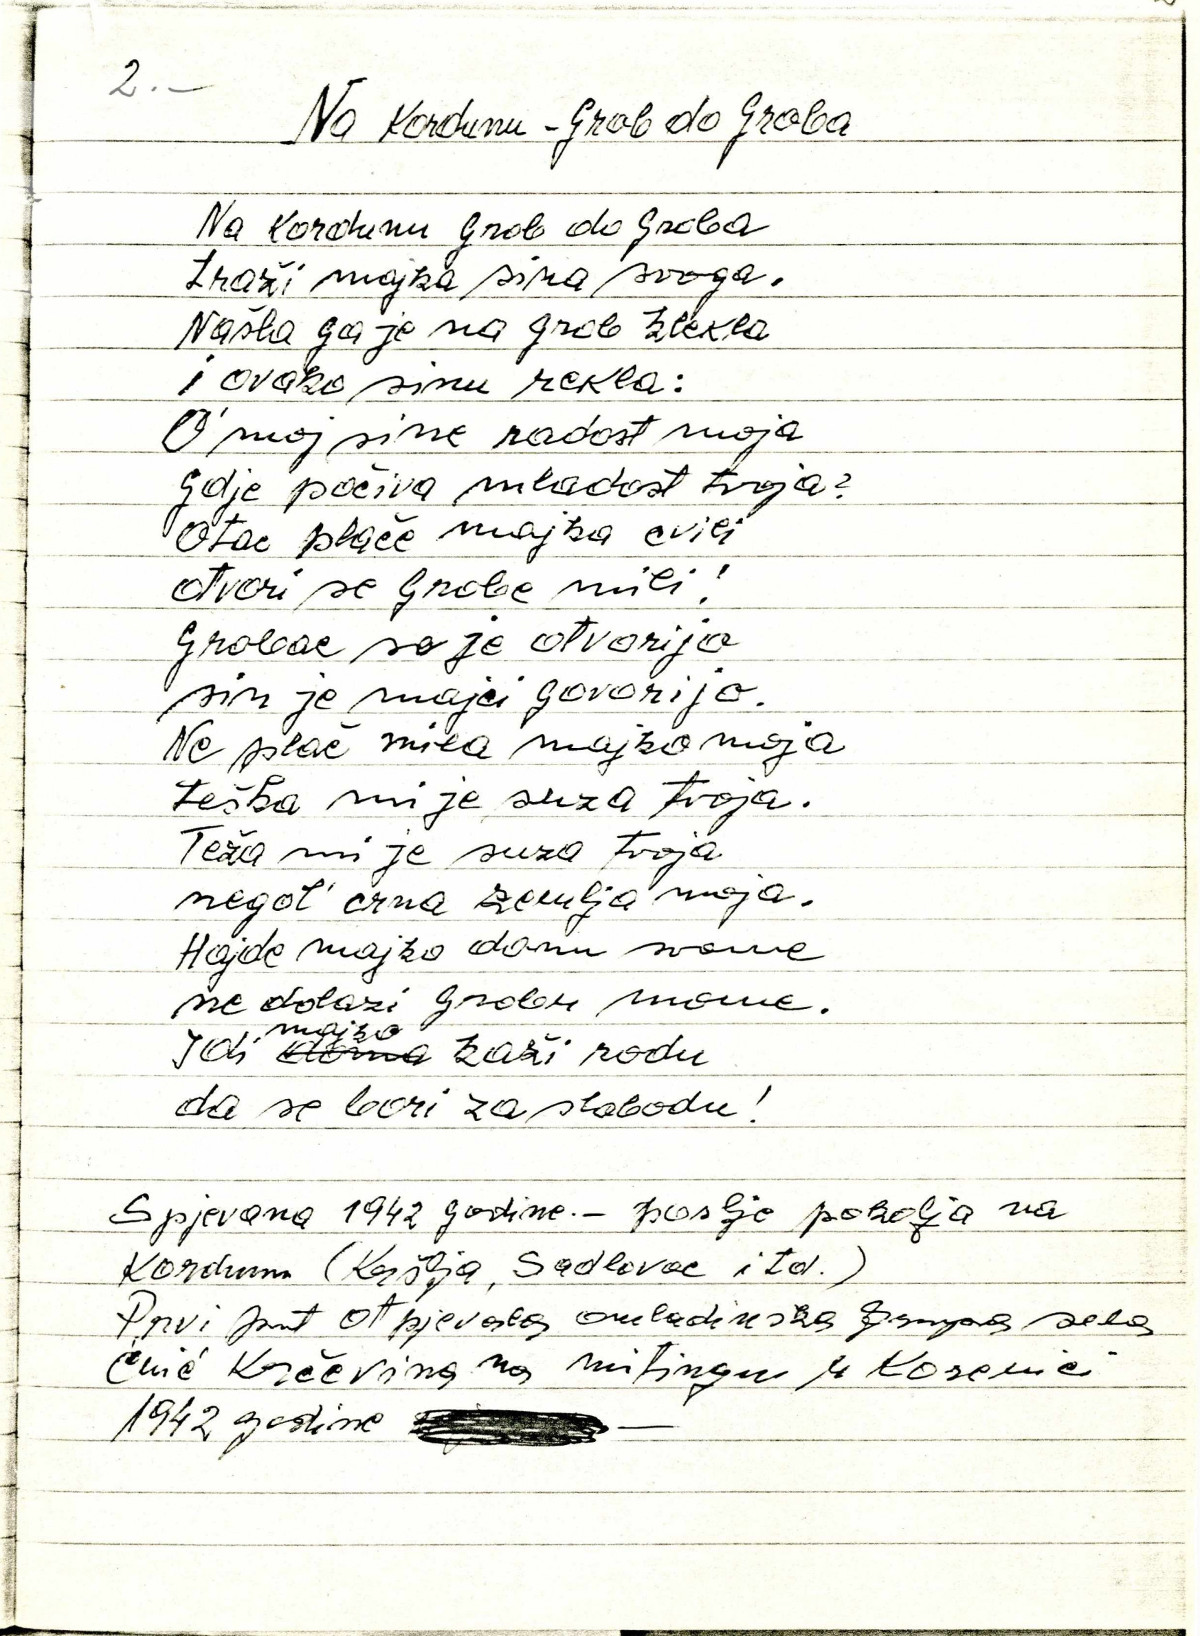 2.-
Na Kordunu - Grob do Groba
Na Kordunu Grob do Groba
traži majka sina svoga.
Našla ga je na grob klekla
i ovako sinu rekla:
O' moj sine radost moja
gdje počiva mladost tvoja?
Otac plače majka cvili
otvori se Grobe mili!
Grobac se je otvorijo
sin je majci govorijo.
Ne plač mila majko moja
teška mi je suza tvoja.
Teža mi je suza tvoja
negol' crna zemlja moja.
Hajde majko domu svome
ne dolazi Grobu mome.
majko
Idi doma kaži rodu
da se bori za slobodu!
Spjevana 1942 godine.- poslje pokolja na
Kordunu (Kršlja, Sadlovac itd.)
Prvi put otpjevala omladinska Grupa sela
Krčevina na mitingu u Korenici
1942 godine —